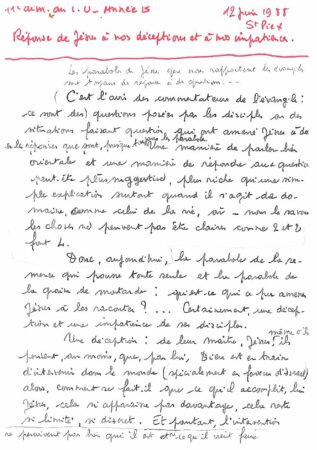 11e dim. du T.O - Année B
12 Juin 1988
St Piex
Réponse de Jésus à nos déceptions et à nos impatiences.
Les paraboles de Jésus que nous rapportent les évangiles
sont toujours des réponses à des questions...
(C'est l'avis des commentateurs de l'évangile :
ce sont des) questions posées par les disciples ou des
situations faisant question, qui ont amené Jésus à
les réponses que sont, presque toujours les paraboles. Une manière de parler bien
orientale et une manière de répondre aux questions
peut-être plus suggestive, plus riche qu'une sim-
ple explication surtout quand il s'agit de do-
maine, comme celui de la vie, où - nous le savons
les choses ne peuvent pas être claires comme 2 et 2
font 4.
Donc, aujourd'hui, la parabole de la se-
mence qui pousse toute seule et la parabole de
la graine de moutarde : qu'est-ce qui a pu amener
Jésus à les raconter ?... Certainement, une décep-
tion et une impatience de ses disciples.
Une déception : de leur maître, Jésus, même s'ils
pensent, au moins, que, par lui, Dieu est en train
d'intervenir dans le monde (spécialement en faveur d'Israël)
alors, comment se fait-il que ce qu'il accomplit, lui
Jésus, cela n'apparaisse pas davantage, cela reste
si limité, si discret. Et pourtant, l'intervention
ne perçoivent pas bien qui il est et ce qu'il vient faire